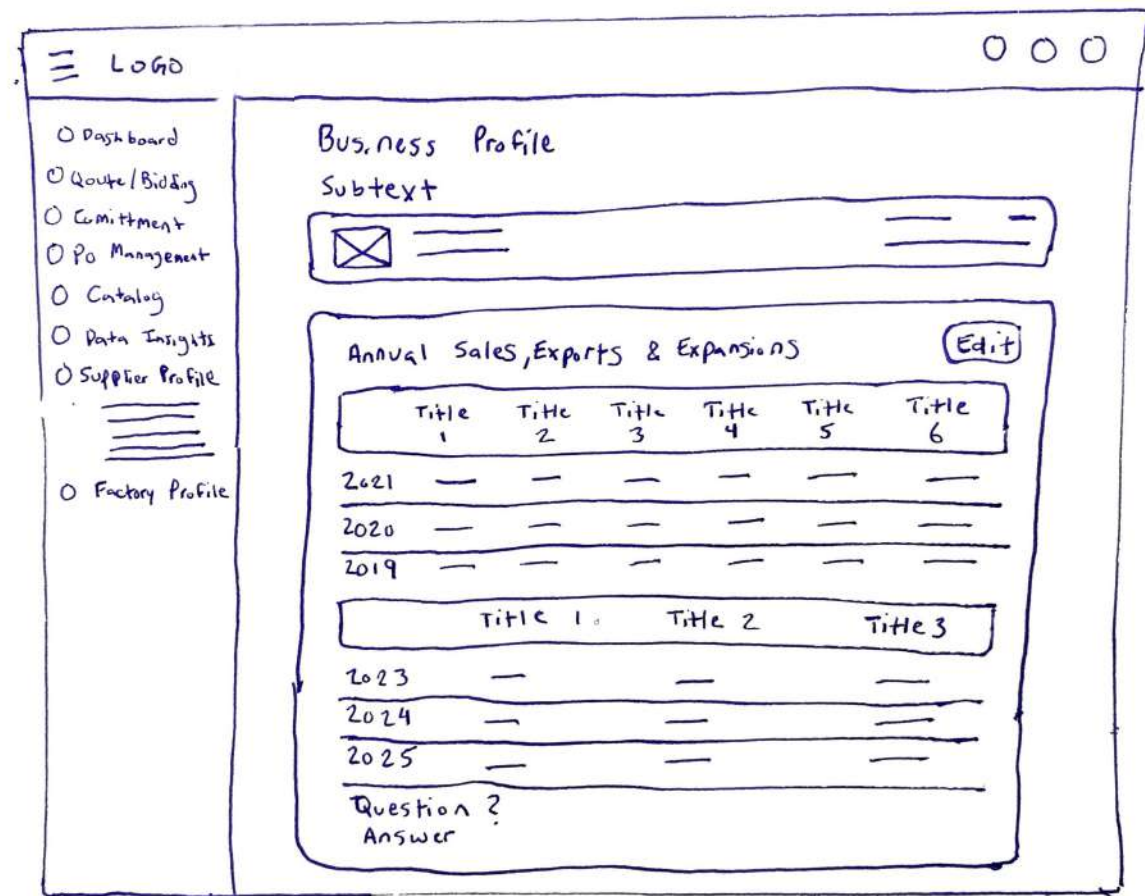 LOGO
Dashboard
Qoute/Bidding
Comittment
Po Management
Catalog
Data Insights
Supplier Profile
Factory Profile
Business Profile
Subtext
Annual Sales, Exports & Expansions
Edit
Title 1 Title 2 Title 3 Title 4 Title 5 Title 6
2021
2020
2019
Title 1 Title 2 Title 3
2023
2024
2025
Question ?
Answer